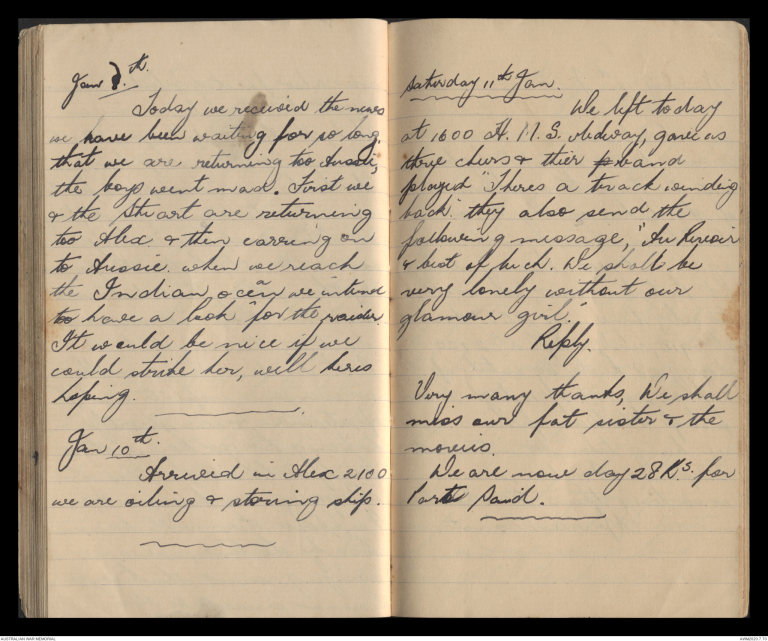 Jan 8.th
Today we received the news
we have been waiting for so long.
that we are returning too Aussie,
the boys went mad. First we
& the Stuart are returning
too Alex. & then carring on
to, Aussie. when we reach
the Indian ocean we intend
to have a look for the raider
It would be nice if we
could strike her, will heres
hoping.
Jan 10th.
Arrived in Alex 2100
we are oiling & storing ship.
Saturday 11th Jan.
We left today
at 1600 H.M.S. Medway, gave us
three cheers & thier band
played "Theres a track winding
back" they also send the
following message, "Au Revoir
& best of luck. We shall be
very lonely without our
glamour girl.
Reply.
Very many thanks, We shall
miss our fat sister & the
movies.
We are now doing 28 Ks. for
Port Said.
AUSTRALIAN WAR MEMORIAL